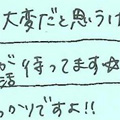 大変だと思うけ
活が待ってます☆
っかりですよ!!